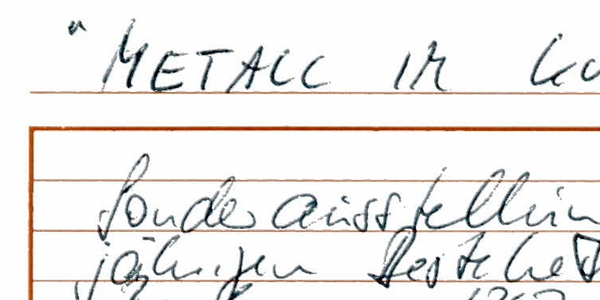 "METALL IM
Sonderausstellun
jährigen Besteh